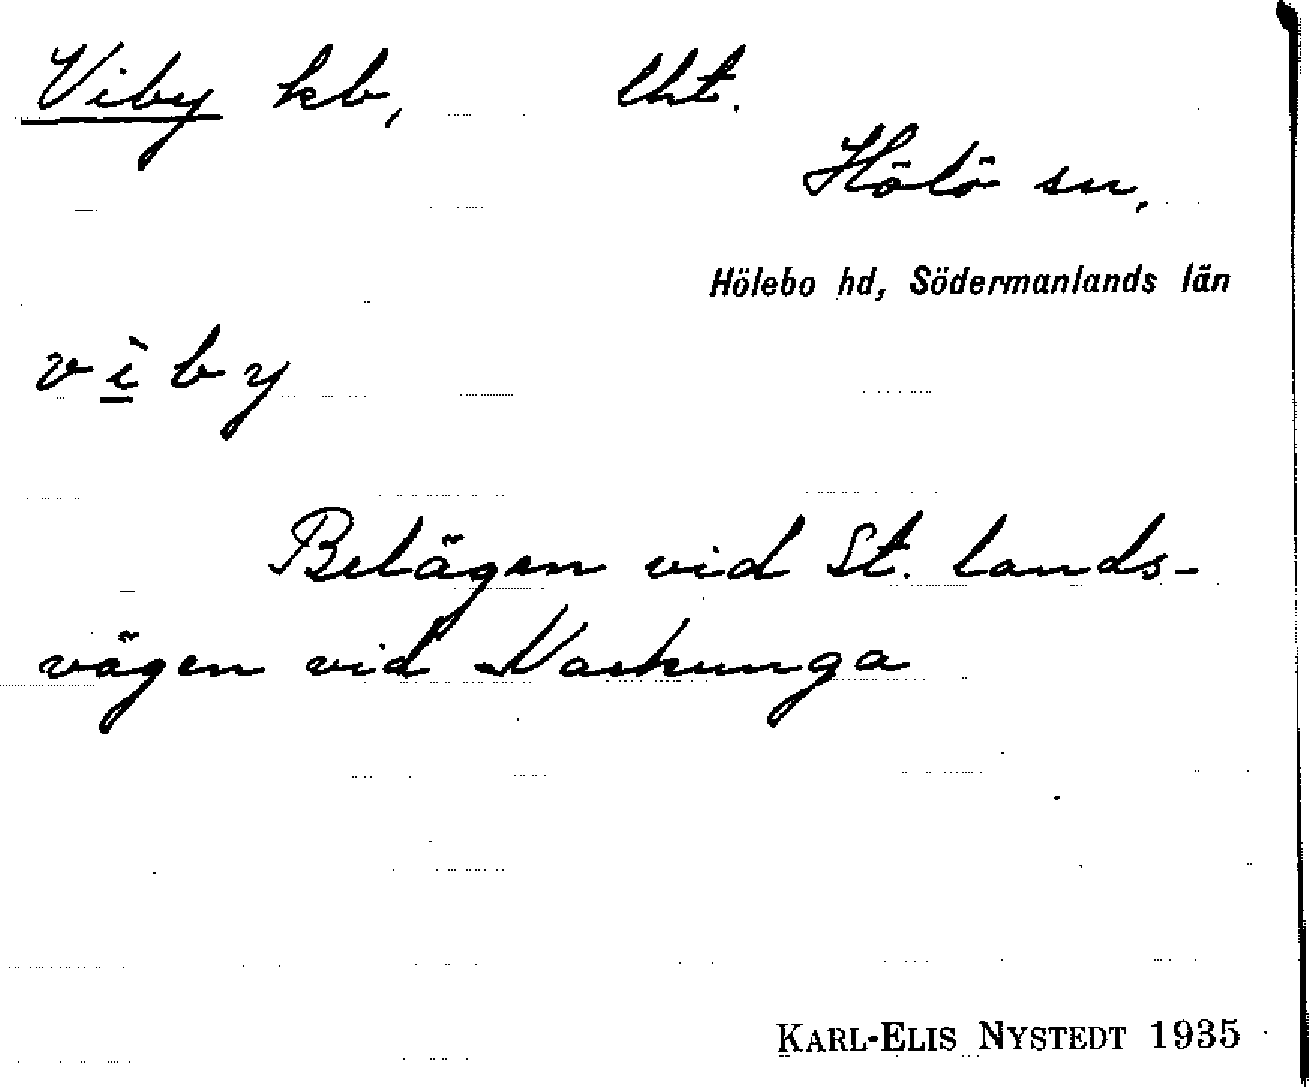 Viby kb, Uht.
Hölö sn.
Hölebo hd, Södermanlands län
v ì b y
Belägen vid St. lands-
vägen vid Vackunga
KARL-ELIS NYSTEDT 1935